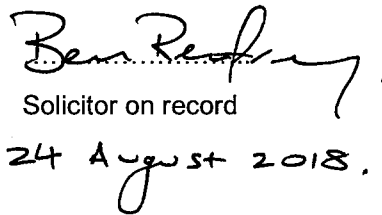 Ben Renfrey
Solicitor on record
24 August 2018.